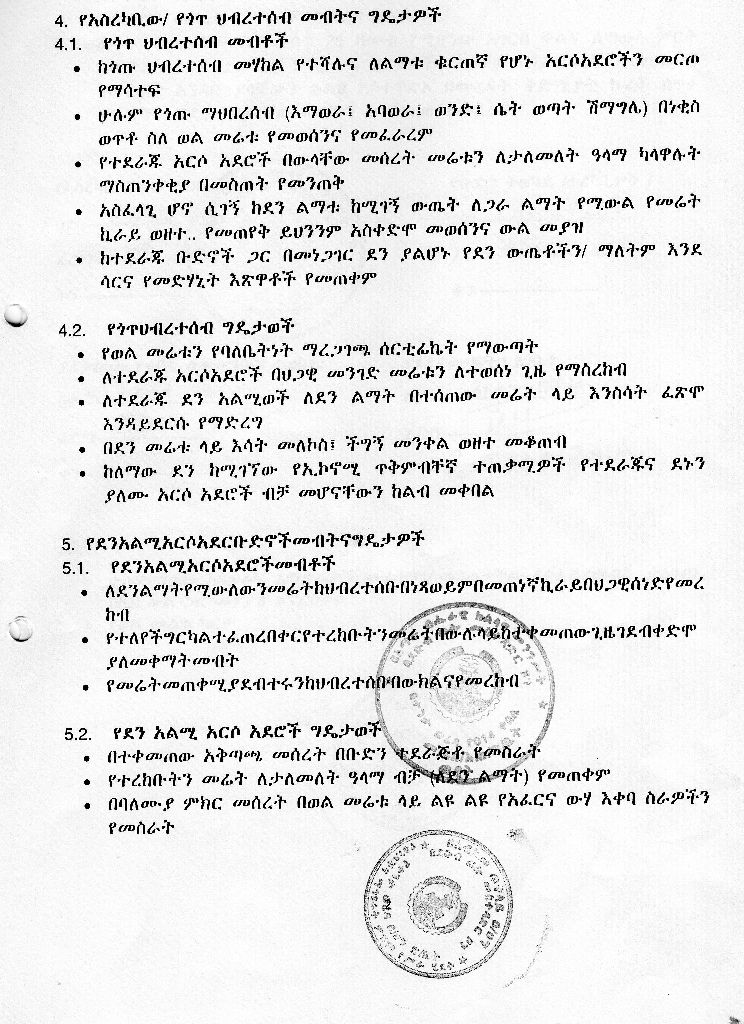 4. የአስረካቢው/ የጎጥ ህብረተሰብ መብትና ግዴታዎች
4.1. የጎጥ ህብረተሰብ መብቶች
• ከጎጡ ህብረተሰብ መሃከል የተሻሉና ለልማቱ ቁርጠኛ የሆኑ አርሶአደሮችን መርጦ
የማሳተፍ
• ሁሉም የጎጡ ማህበረሰብ (እማወራ፤ አባወራ፤ ወንድ፤ ሴት ወጣት ሽማግሌ) በነቂስ
ወጥቶ ስለ ወል መሬቱ የመወሰንና የመፈራረም
• የተደራጁ አርሶ አደሮች በውላቸው መሰረት መሬቱን ለታለመለት ዓላማ ካላዋሉት
ማስጠንቀቂያ በመስጠት የመንጠቅ
• አስፈላጊ ሆኖ ሲገኝ ከደን ልማቱ ከሚገኝ ውጤት ለጋራ ልማት የሚውል የመሬት
ኪራይ ወዘተ.. የመጠየቅ ይህንንም አስቀድሞ መወሰንና ውል መያዝ
• ከተደራጁ ቡድኖች ጋር በመነጋገር ደን ያልሆኑ የደን ውጤቶችን/ ማለትም እንደ
ሳርና የመድሃኒት እጽዋቶች የመጠቀም
4.2. የጎጥህብረተሰብ ግዴታወች
• የወል መሬቱን የባለቤትነት ማረጋገጫ ሰርቲፊኬት የማውጣት
• ለተደራጁ አርሶአደሮች በህጋዊ መንገድ መሬቱን ለተወሰነ ጊዜ የማስረከብ
• ለተደራጁ ደን አልሚወች ለደን ልማት በተሰጠው መሬት ላይ እንስሳት ፈጽሞ
እንዳይደርሱ የማድረግ
• በደን መሬቱ ላይ እሳት መለኮስ፤ ችግኝ መንቀል ወዘተ መቆጠብ
• ከለማው ደን ከሚገኘው የኢኮኖሚ ጥቅምብቸኛ ተጠቃሚዎች የተደራጁና ደኑን
ያለሙ አርሶ አደሮች ብቻ መሆናቸውን ከልብ መቀበል
5. የደንአልሚአርሶአደርቡድኖችመብትናግዴታዎች
5.1. የደንአልሚአርሶአደሮችመብቶች
• ለደንልማትየሚውለውንመሬትከህብረተሰቡበነጻወይምበመጠነኛኪራይበህጋዊሰነድየመረ
ከብ
• የተለየችግርካልተፈጠረበቀርየተረከቡትንመሬትበውሉላይከተቀመጠውጊዜገደብቀድሞ
ያለመቀማትመብት
• የመሬትመጠቀሚያደብተሩንከህብረተሰቡበውክልናየመረከብ
5.2. የደን አልሚ አርሶ አደሮች ግዴታወች
• በተቀመጠው አቅጣጫ መሰረት በቡድን ተደራጅቶ የመስራት
• የተረከቡትን መሬት ለታለመለት ዓላማ ብቻ (ለደን ልማት) የመጠቀም
• በባለሙያ ምክር መሰረት በወል መሬቱ ላይ ልዩ ልዩ የአፈርና ውሃ እቀባ ስራዎችን
የመስራት